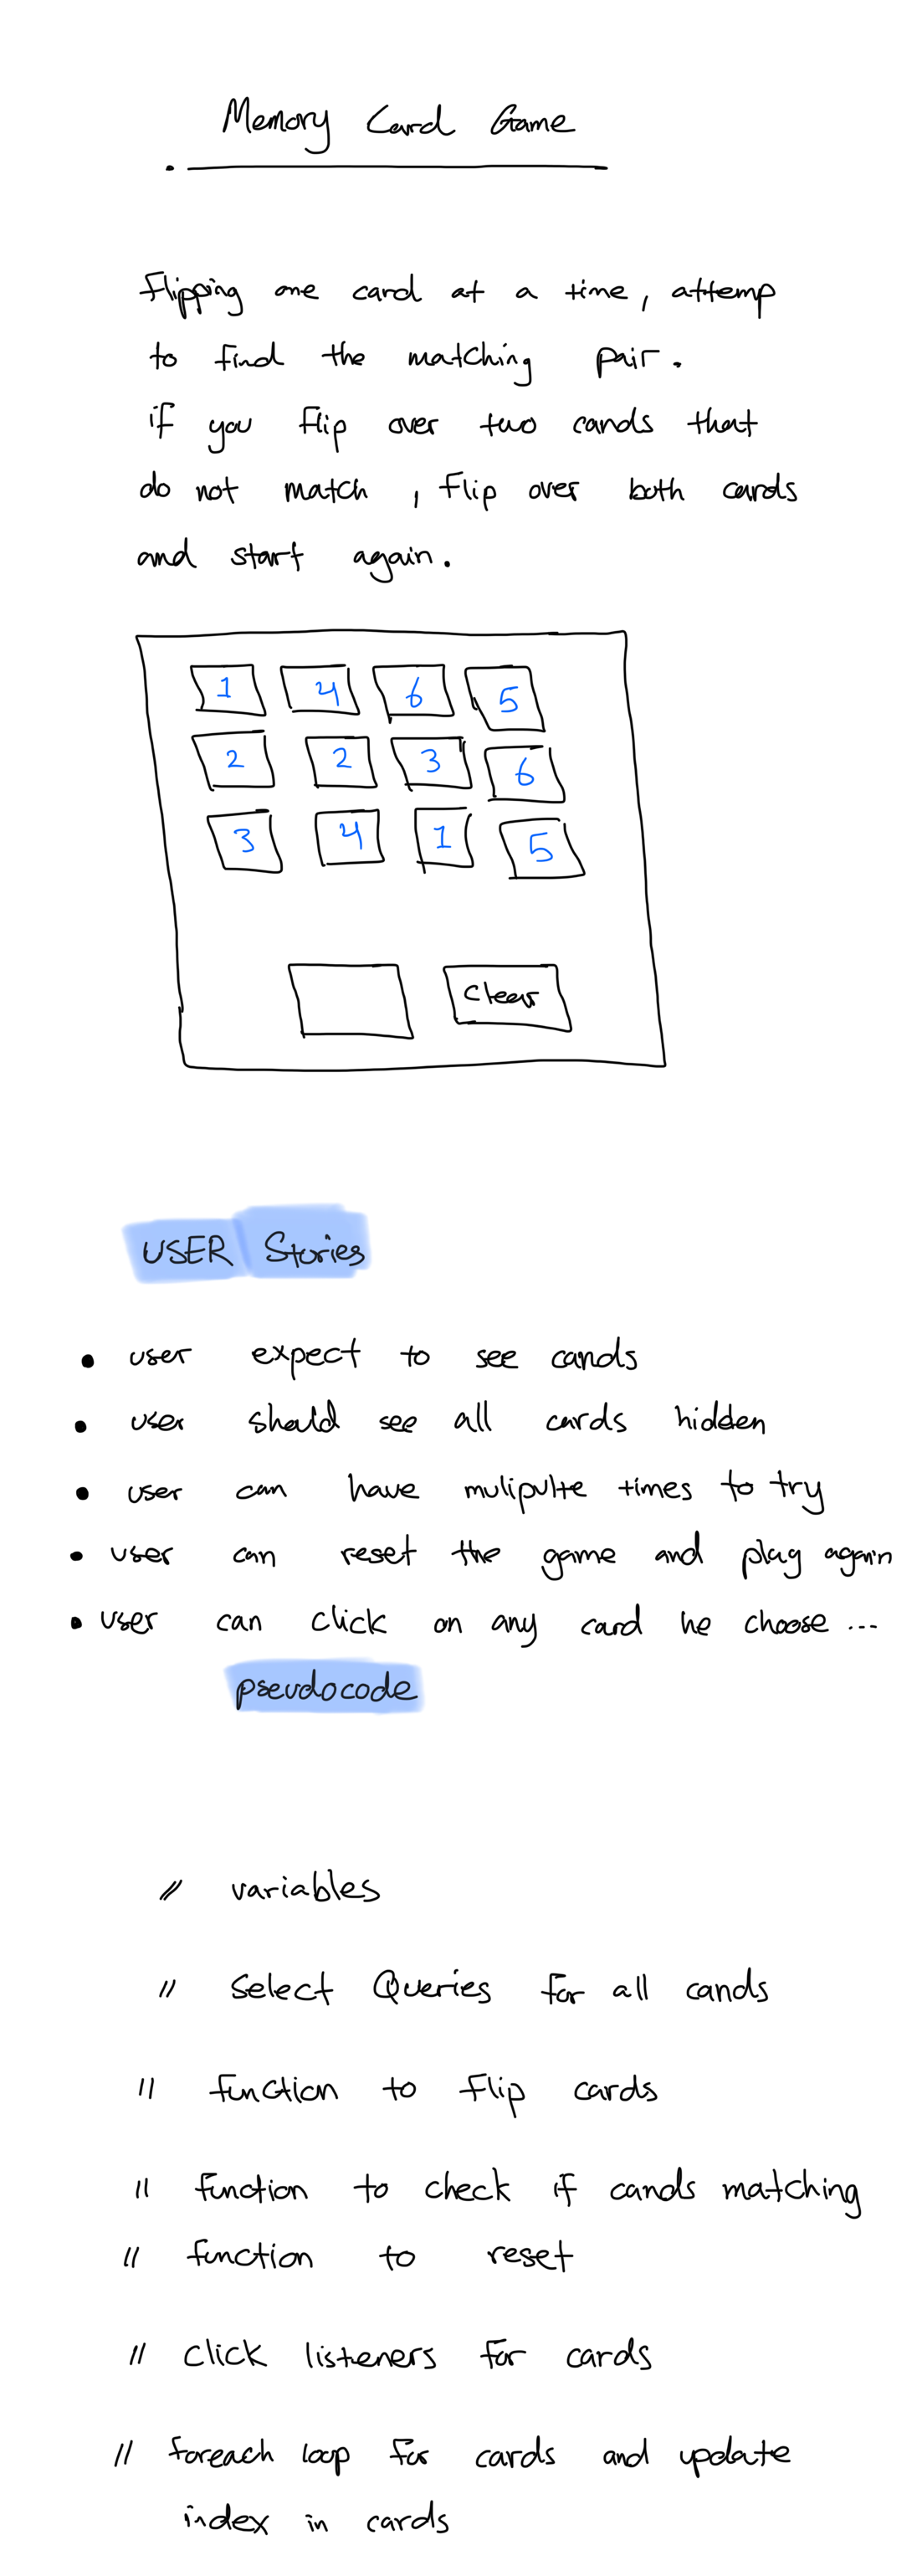 Memory Card Game
Flipping one card at a time, attemp
to find the matching pair.
if you flip over two cards that
do not match, flip over both cards
and start again.
1 4 6 5
2 2 3 6
3 4 1 5
Clear
USER Stories
• user expect to see cards
• user should see all cards hidden
• user can have mulipulte times to try
• user can reset the game and play again
• user can click on any card he choose ...
pseudocode
// variables
// Select Queries for all cards
// function to flip cards
// function to check if cards matching
// function to reset
// click listeners for cards
// foreach loop for cards and update
index in cards